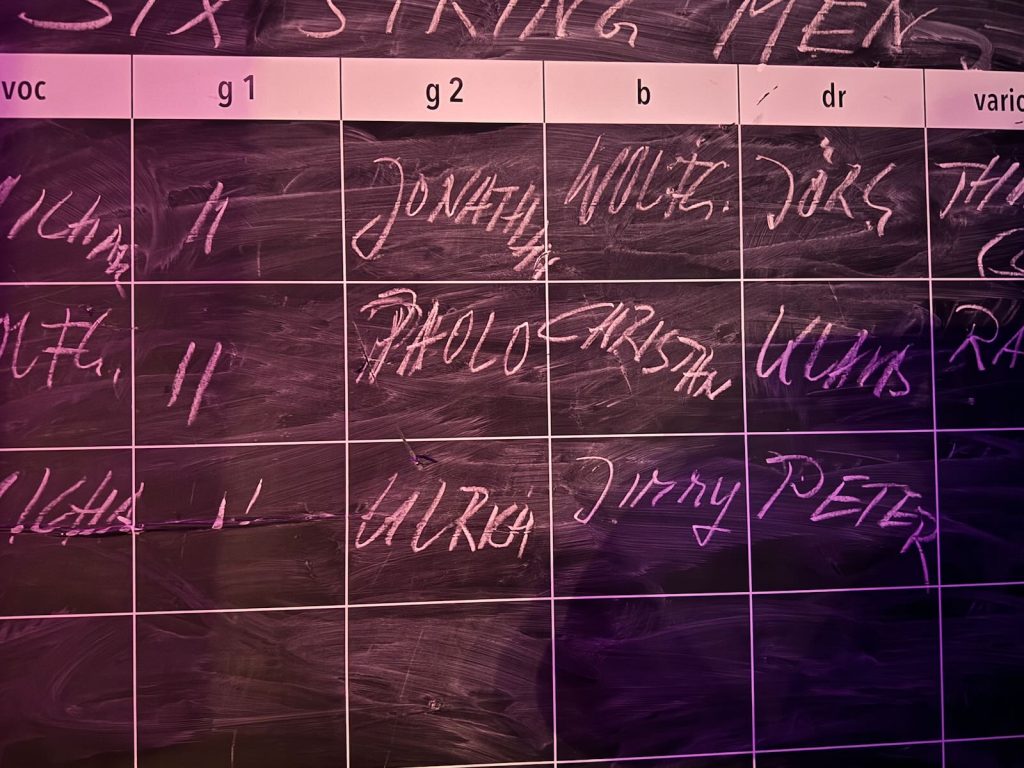 SIX STRING MEN
voc g 1 g 2 b dr vario
ICHAEL " JONATHAN WOLFG. JÖRG TH
OLFG. " PAOLO CHRISTIAN KLAUS RA
" ULRICH Jimmy PETER